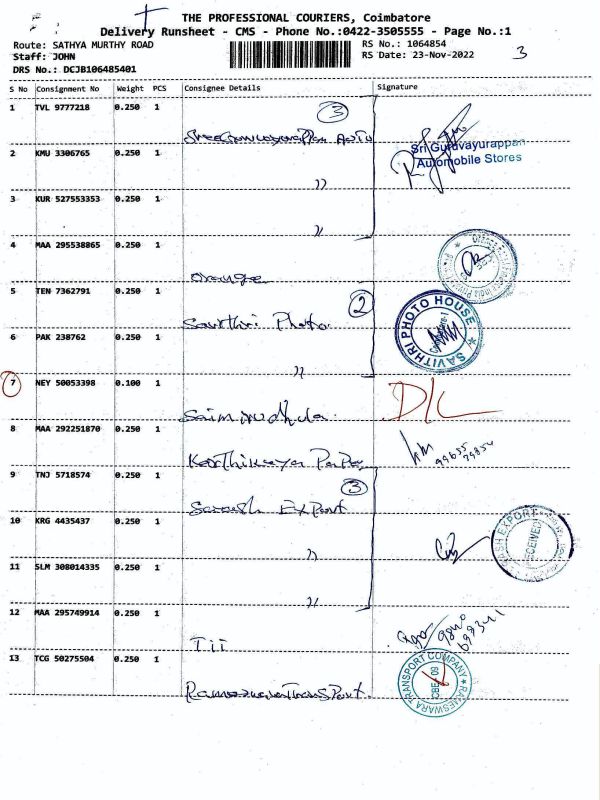 THE PROFESSIONAL COURIERS, Coimbatore
Delivery Runsheet - CMS - Phone No.:0422-3505555 - Page No.:1
Route: SATHYA MURTHY ROAD
RS No.: 1064854
3
Staff: JOHN
RS Date: 23-Nov-2022
DRS No.: DCJB106485401
S No Consignment No Weight PCS Consignee Details Signature
1 TVL 9777218 0.250 1
3
Sri Guruvayurappan
Automobile Stores
2 KMU 3306765 0.250 1
"
3 KUR 527553353 0.250 1
"
4 MAA 295538865 0.250 1
Orange
5 TEN 7362791 0.250 1
2
Savithri Photo.
SAVITHRI PHOTO HOUSE
6 PAK 238762 0.250 1
"
7 NEY 50053398 0.100 1
D/L
8 MAA 292251870 0.250 1
9 TNJ 5718574 0.250 1
3
Export
10 KRG 4435437 0.250 1
"
RECEIVED
11 SLM 308014335 0.250 1
"
12 MAA 295749914 0.250 1
13 TCG 50275504 0.250 1
RAMESWARA TRANSPORT COMPANY